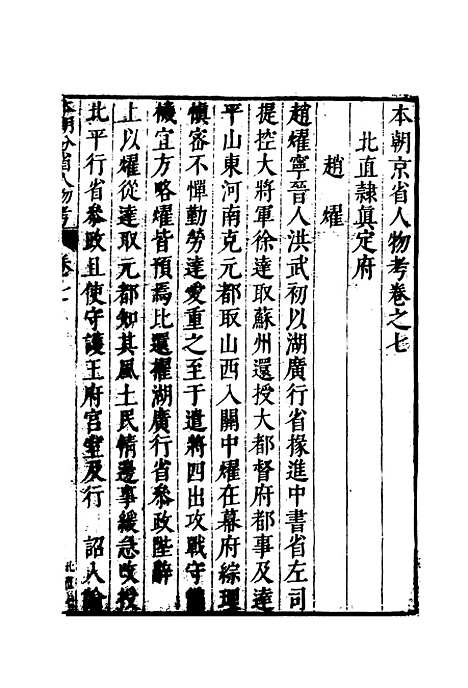 本朝京省人物考卷之七
北直隷真定府
趙燿
趙燿寧晉人洪武初以湖廣行省掾進中書省左司
提控大將軍徐達取蘇州還授大都督府都事及達
平山東河南克元都取山西入關中燿在幕府綜理
慎審不憚勤勞達愛重之至于遣將四出攻戰守備
機宜方略燿皆預焉比還擢湖廣行省參政陛辭
上以燿從達取元都知其風土民情邊事緩急改授
北平行省參政且使守護王府宮室及行 詔入諭
本朝分省人物考 卷之七